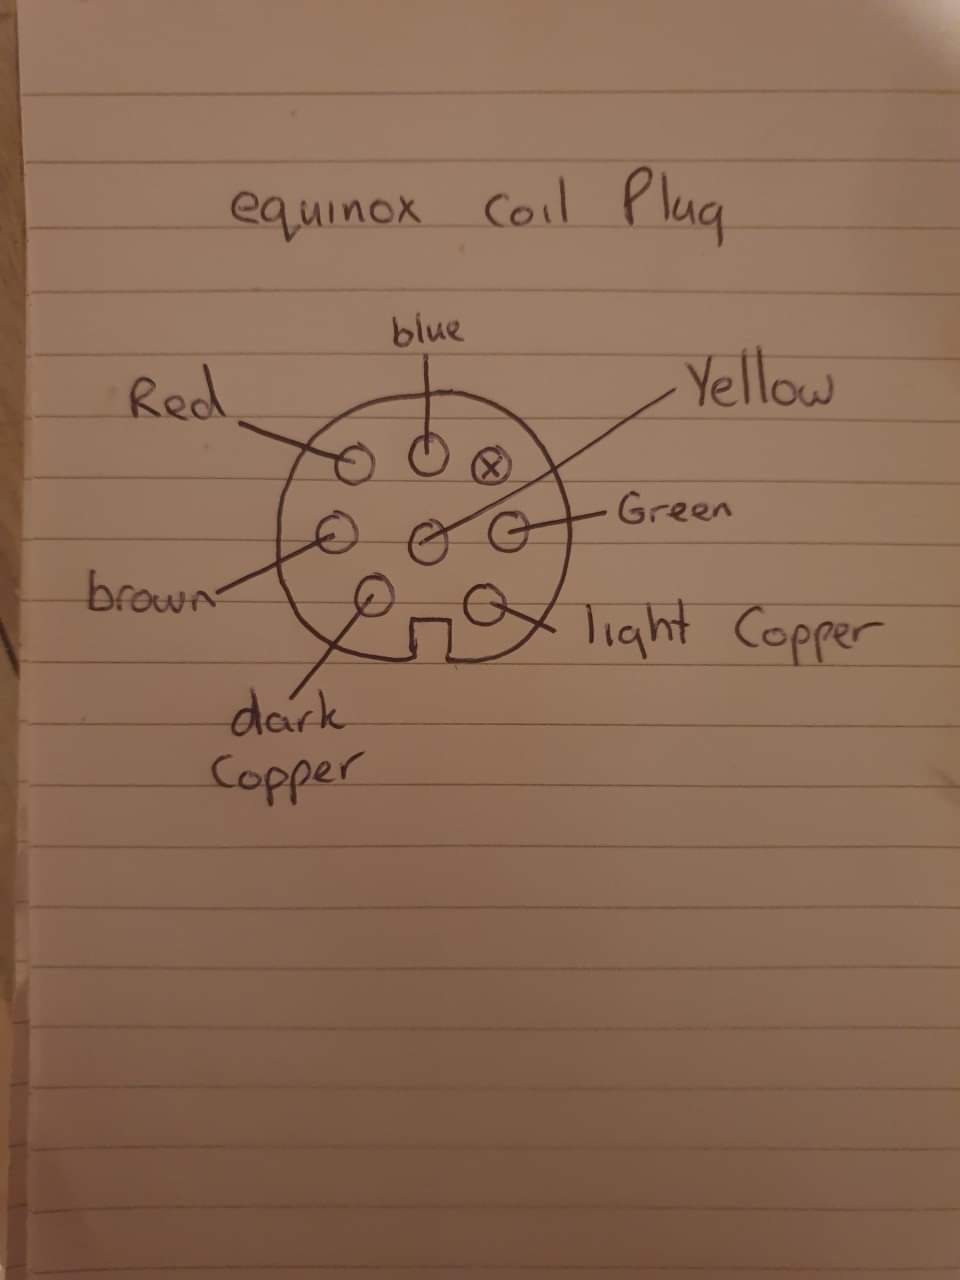 equinox coil Plug
blue
Red
Yellow
Green
brown
light Copper
dark
Copper